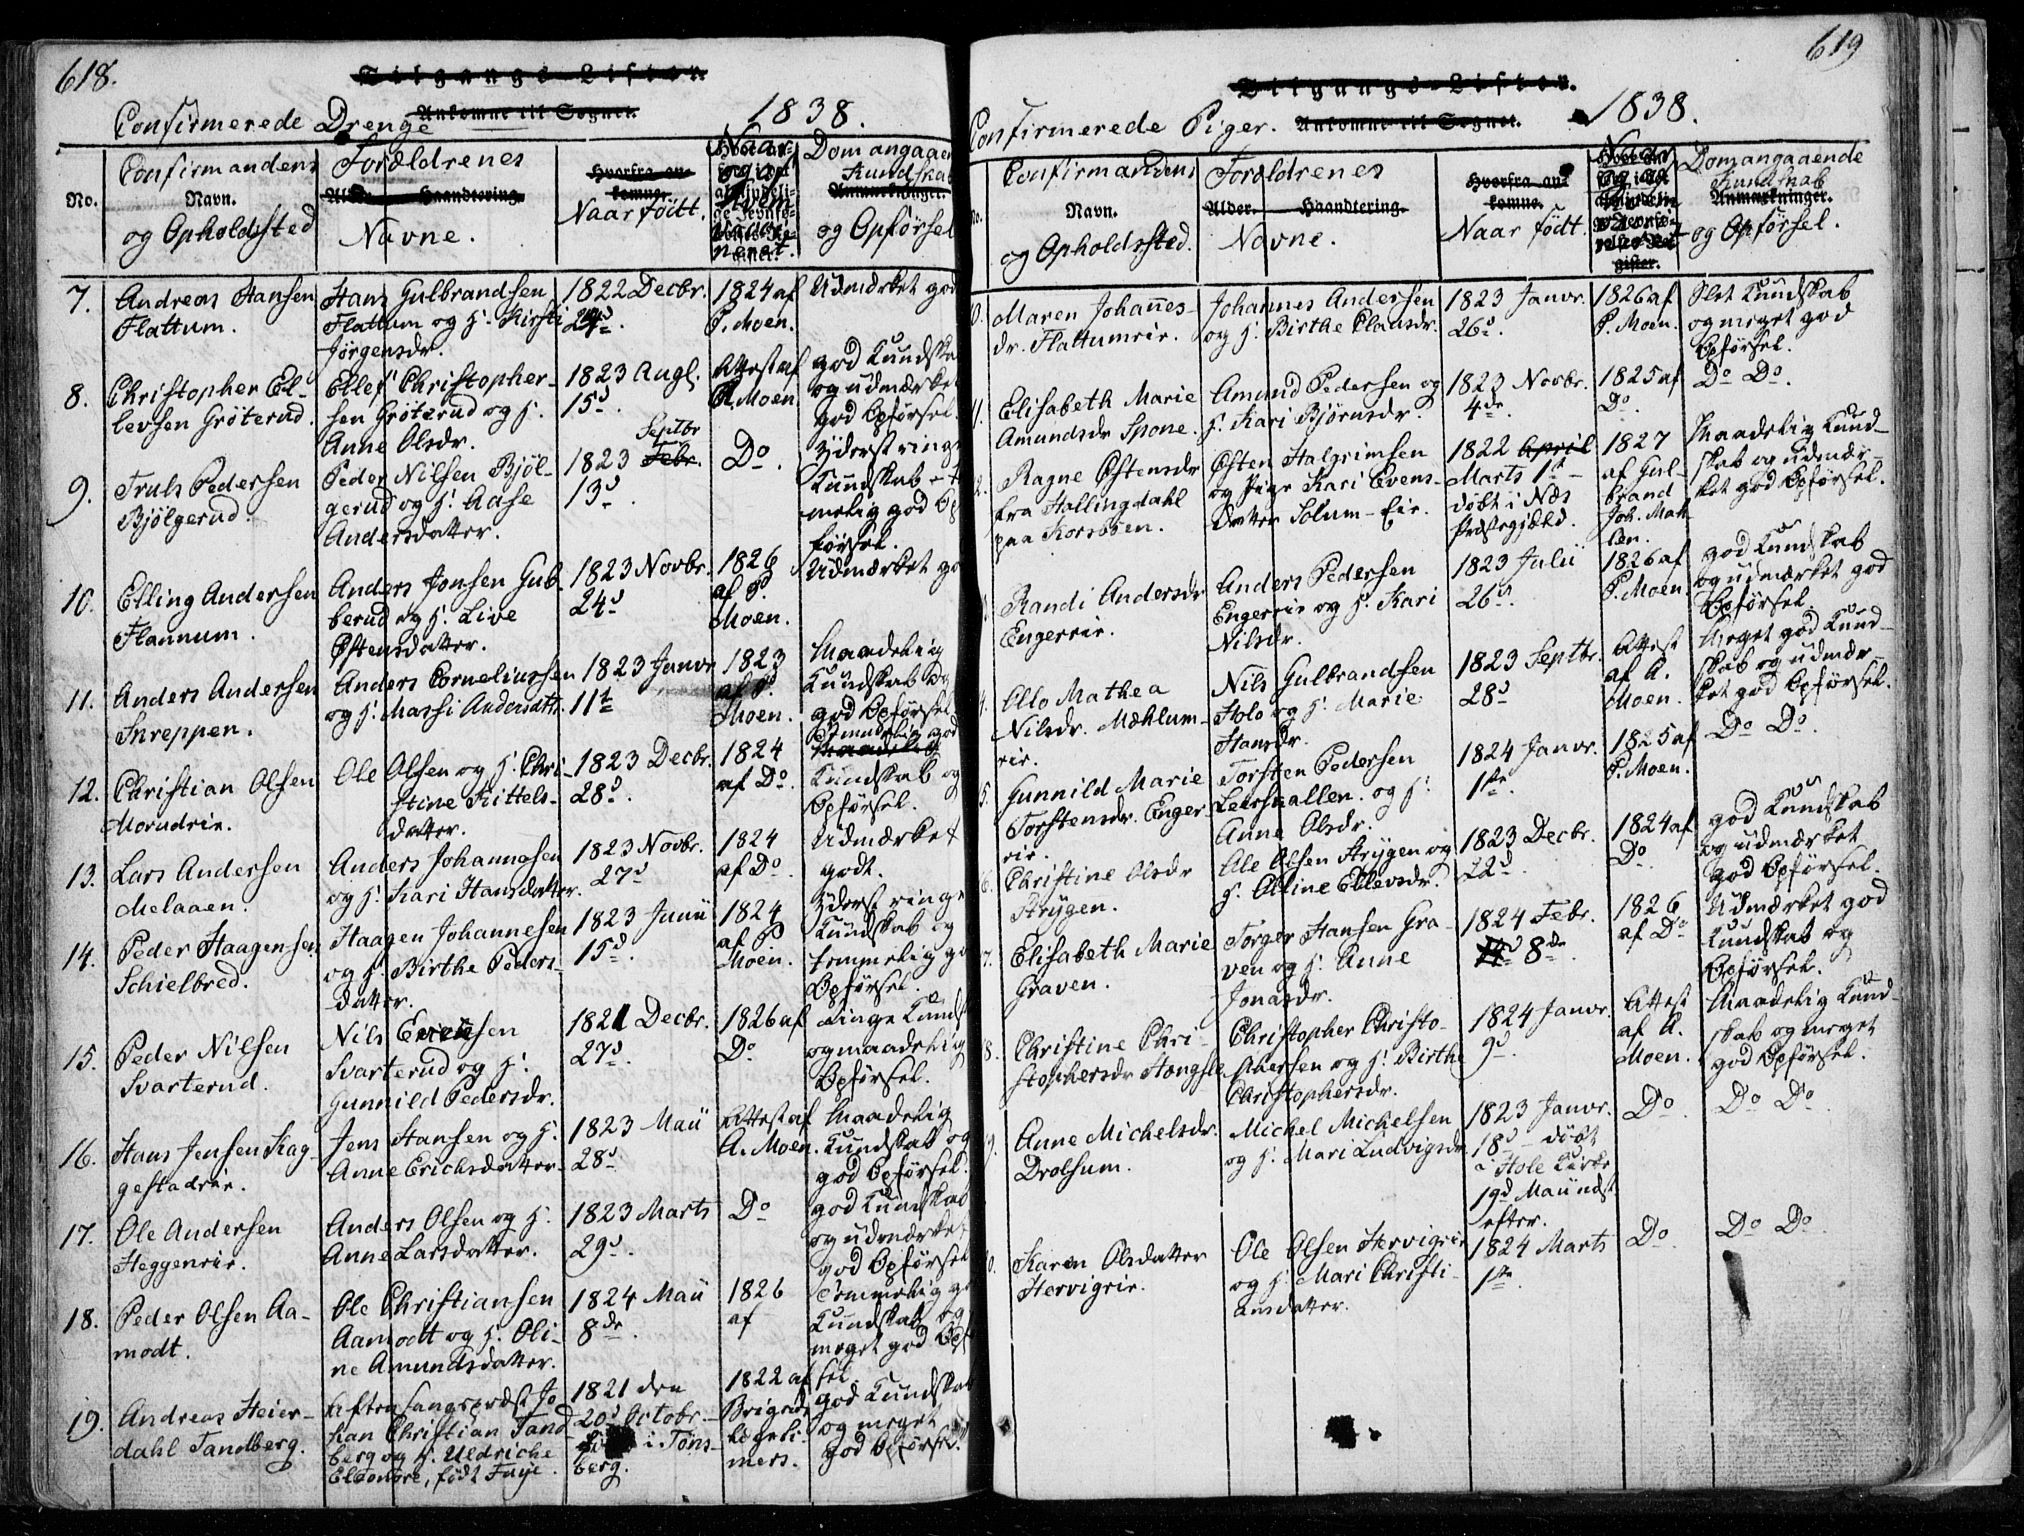 618.
Tilgangs-Listen.
Ankomne til Sognet.
Confirmerede Drenge 1838.
No.
Confirmandens
Navn.
og Opholdsted
Forældrenes
Alder. Haandtering.
Navne.
Hvorfra ankomne.
Naar föidt.
Naar
og af
Hvem
Vacci-
neret.
Dom angaaen
Kundska
Anmærkninger.
og Opførsel
7. Andreas Hansen
Flattum.
Hans Gulbrandsen
Flattum og H. Kirsti
Jørgensdr.
1822 Decbr.
24d.
1824 af
P. Moen.
Udmærket god
8. Christopher El-
levsen Gröterud.
Ellef Christopher-
sen Gröterud og H.
Anne Olsdr.
1823 Augl.
15d.
Attest af
A. Moen
god Kundska
og udmærket
god Opførsel.
9. Truls Pedersen
Bjölgerud.
Peder Nilsen Bjöl-
gerud og H. Aase
Andersdatter.
Septbr
1823 Febr.
13d.
Do.
Yderst ringe
Kundskab -
melig god Op
førsel.
10. Elling Andersen
Flannum.
Anders Jonsen Gub-
berud og H. Live
Østensdatter.
1823 Novbr.
24d
1826
af P.
Moen.
Udmærket go
11. Anders Andersen
Snreppen.
Anders Corneliussen
og H. Massi Andersdtr.
1823 Janvr
11te
1823
af P.
Moen.
Maadelig
Kundskab og
god Opførsel
12. Christian Olsen
Morudrie.
Ole Olsen og H. Chri-
stine Kittels-
datter.
1823 Decbr.
28d.
1824
af Do.
Temmelig god
Maadelig
Kundskab og
Opførsel.
13. Lars Andersen
Melaaen.
Anders Johannesen
og H. Kari Hansdatter.
1823 Novbr.
27d
1824
af Do.
Udmærket
godt.
14. Peder Haagensen
Schielbred.
Haagen Johannesen
og H. Birthe Peders-
datter.
1823 Junii
15d.
1824
af P
Moen.
Yderst ringe
Kundskab og
temmelig go
Opførsel.
15. Peder Nilsen
Svarterud.
Nils Evensen
Svarterud og H.
Gunnild Pedersdr.
1821 Decbr.
27d.
1826 af
Do
ringe Kundsk
og maadelig
Opførsel.
16. Hans Jensen Kag-
gestadrie.
Jens Hansen og H.
Anne Erichsdatter.
1823 Maii
28d
Attest af
A. Moen.
Maadelig
Kundskab og
god Opførsel.
17. Ole Andersen
Heggenrie.
Anders Olsen og H.
Anne Larsdatter.
1823 Marts
29d.
Do
god Kundskab
og udmærket
god Opførsel
18. Peder Olsen Aa-
modt.
Ole Christiansen
Aamodt og H. Oli-
ne Amundsdatter.
1824 Maii
8de.
1826
af
Temmelig go
Kundskab og
meget god Opf
sel.
19. Andreas Heier-
dahl Tandberg.
Aftensangspræst Jo
han Christian Tand-
berg og H. Uldriche
Eleonore, født Faye.
1821 den
20d Octobr.
i Töns-
berg.
1822 af
Brigade
lægeli-
mers.
god Kundskab
og meget
god Opførsel.
619
Tilgangs-Listen.
Ankomne til Sognet.
Confirmerede Piger. 1838.
No.
Confirmandens
Navn.
og Opholdssted.
Forældrenes
Alder. Haandtering.
Navne.
Hvorfra ankomne.
Naar født.
Dom angaaende
Kundskab
Anmærkninger.
og Opførsel.
0. Maren Johannes-
dr. Flattumrie.
Johannes Andersen
og H. Birthe Clausdr.
1823 Janvr.
26d.
1826 af
P. Moen.
Slet Kundskab
og meget god
Opførsel.
1. Elisabeth Marie
Amundsdr Spone.
Amund Pedersen og
H. Kari Bjørnsdr.
1823 Novbr.
4de.
1825 af
Do.
Do Do.
2. Ragne Østensdr
fra Hallingdahl
paa Korsöen.
Østen Halgrimsen
og Pige Kari Evens-
datter Solum-Eie.
1822 April
Marts 1te -
döbt i Næs
Præstegjeld.
1827
af Gul-
brand
Joh. Mæh
len.
Maadelig Kund-
skab og udmær-
ket god Opførsel.
3. Randi Andersdr
Engerrie.
Anders Pedersen
Engerrie og H. Kari
Nilsdr.
1823 Julii
26d.
1826 af
P. Moen.
god Kundskab
og udmærket god
Opførsel.
4. Olo Mathea
Nilsdr. Mæhlum-
rie.
Nils Gulbrandsen
Holo og H. Marie
Hansdr.
1823 Septbr.
28d
Attest
af A.
Moen.
Meget god Kund-
skab og udmær-
ket god Opførsel.
5. Gunnild Marie
Torstensdr. Enger-
rie.
Torsten Pedersen
Leershallen. og H.
Anne Olsdr.
1824 Janvr.
1ste.
1825 af
P. Moen.
Do Do.
6. Christine Olsdr
Strygen.
Ole Olsen Strygen og
H. Olline Ellevsdr.
1823 Decbr.
22d.
1824 af
Do
god Kundskab
og udmærket
god Opførsel.
7. Elisabeth Marie
Graven.
Torger Hansen Gra-
ven og H. Anne
Jonasdr.
1824 Febr.
8de.
1826
af Do
Udmærket god
Kundskab og
Opførsel.
8. Christine Chri-
stophersdr Hongsle
Christopher Christo-
phersen og H. Birthe
Christophersdr.
1824 Janvr.
9d.
Attest
af A.
Moen.
Maadelig Kund-
skab og meget
god Opførsel.
9. Anne Michelsdr.
Drolsum.
Michel Michelsen
og H. Mari Ludvigsdr
1823 Janvr.
18d - döbt
i Hole Kirke
19d Maii næst
efter.
Do.
Do Do
0. Karen Olsdatter
Hervigrie.
Ole Olsen Hervigrie
og H. Mari Christi-
ansdatter.
1824 Marts
1ste.
Do.
Do Do